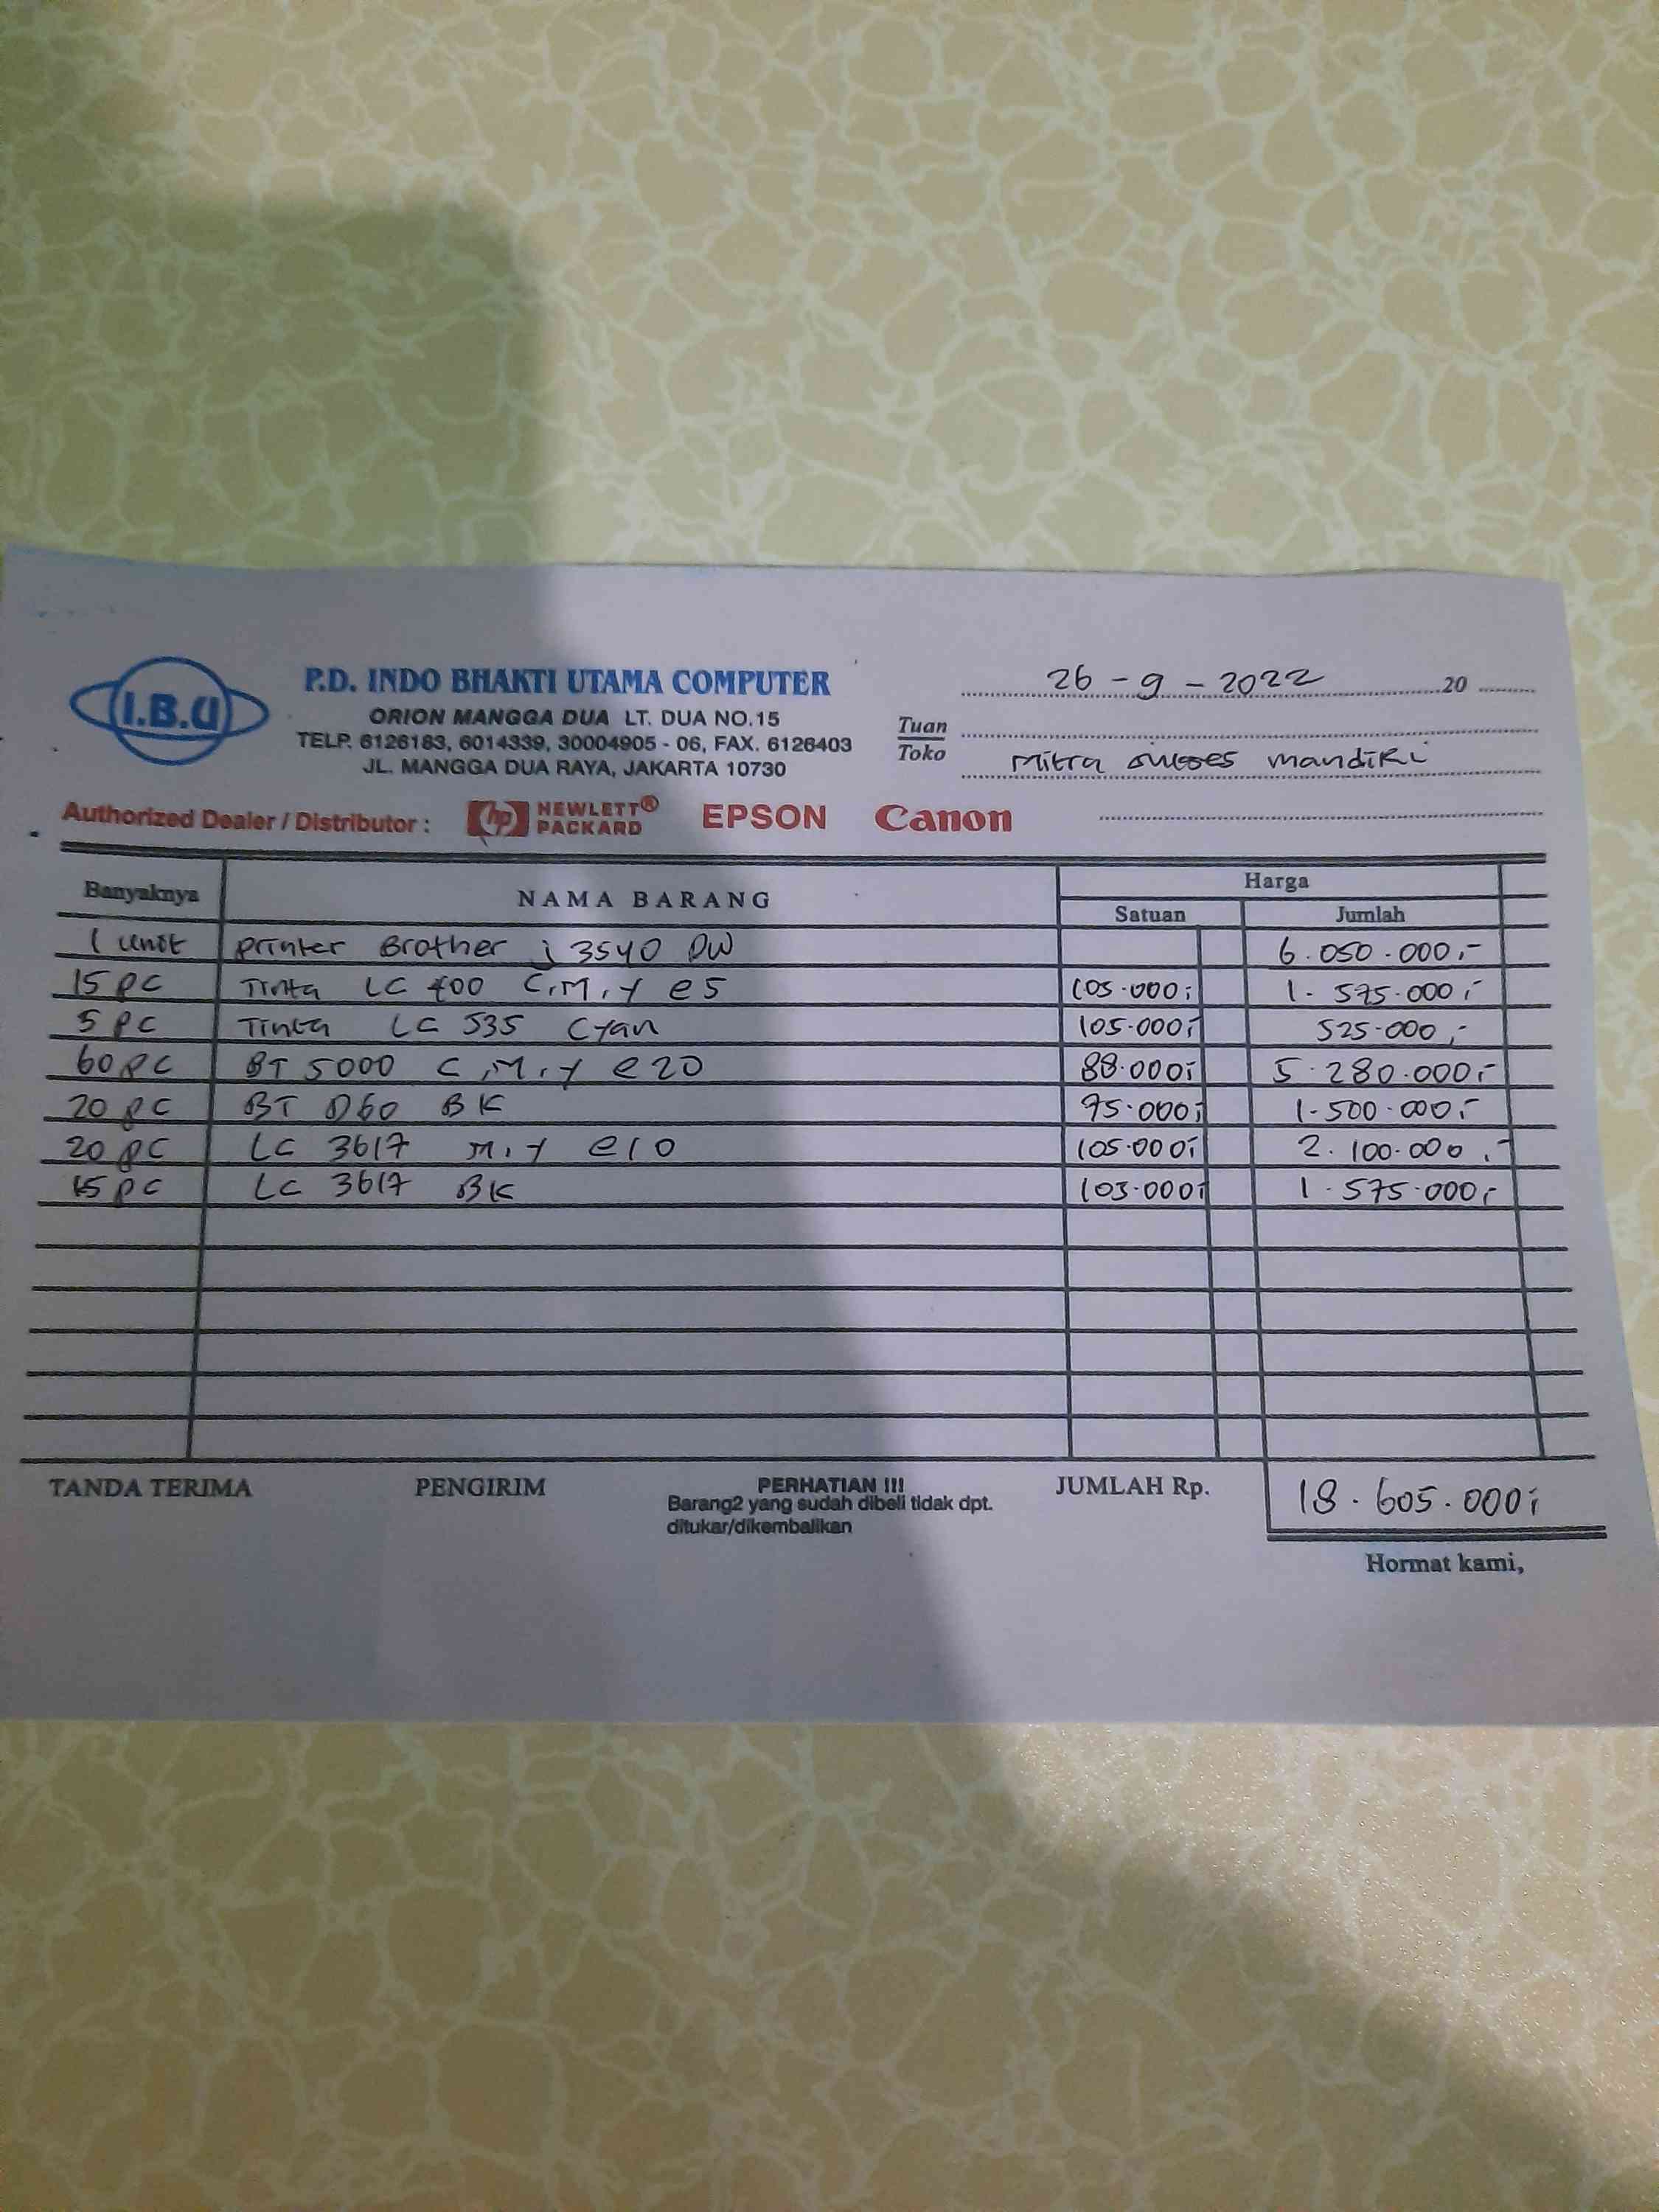 I.B.U
P.D. INDO BHAKTI UTAMA COMPUTER
ORION MANGGA DUA LT. DUA NO.15
TELP. 6126183, 6014339, 30004905 - 06, FAX. 6126403
JL. MANGGA DUA RAYA, JAKARTA 10730
26 - 9 - 2022 20
Tuan
Toko Mitra sukses mandiri
Authorized Dealer / Distributor : hp HEWLETT® PACKARD EPSON Canon
Banyaknya NAMA BARANG Harga
Satuan Jumlah
1 unit Printer Brother j 3540 DW 6.050.000,-
15 pc Tinta LC 400 C,M,Y @5 105.000,- 1.575.000,-
5 pc Tinta LC 535 Cyan 105.000,- 525.000,-
60 pc BT 5000 C,M,Y @20 88.000,- 5.280.000,-
20 pc BT D60 BK 75.000,- 1.500.000,-
20 pc LC 3617 M,Y @10 105.000,- 2.100.000,-
15 pc LC 3617 BK 105.000,- 1.575.000,-
TANDA TERIMA PENGIRIM PERHATIAN !!! JUMLAH Rp. 18.605.000,-
Barang2 yang sudah dibeli tidak dpt.
ditukar/dikembalikan
Hormat kami,